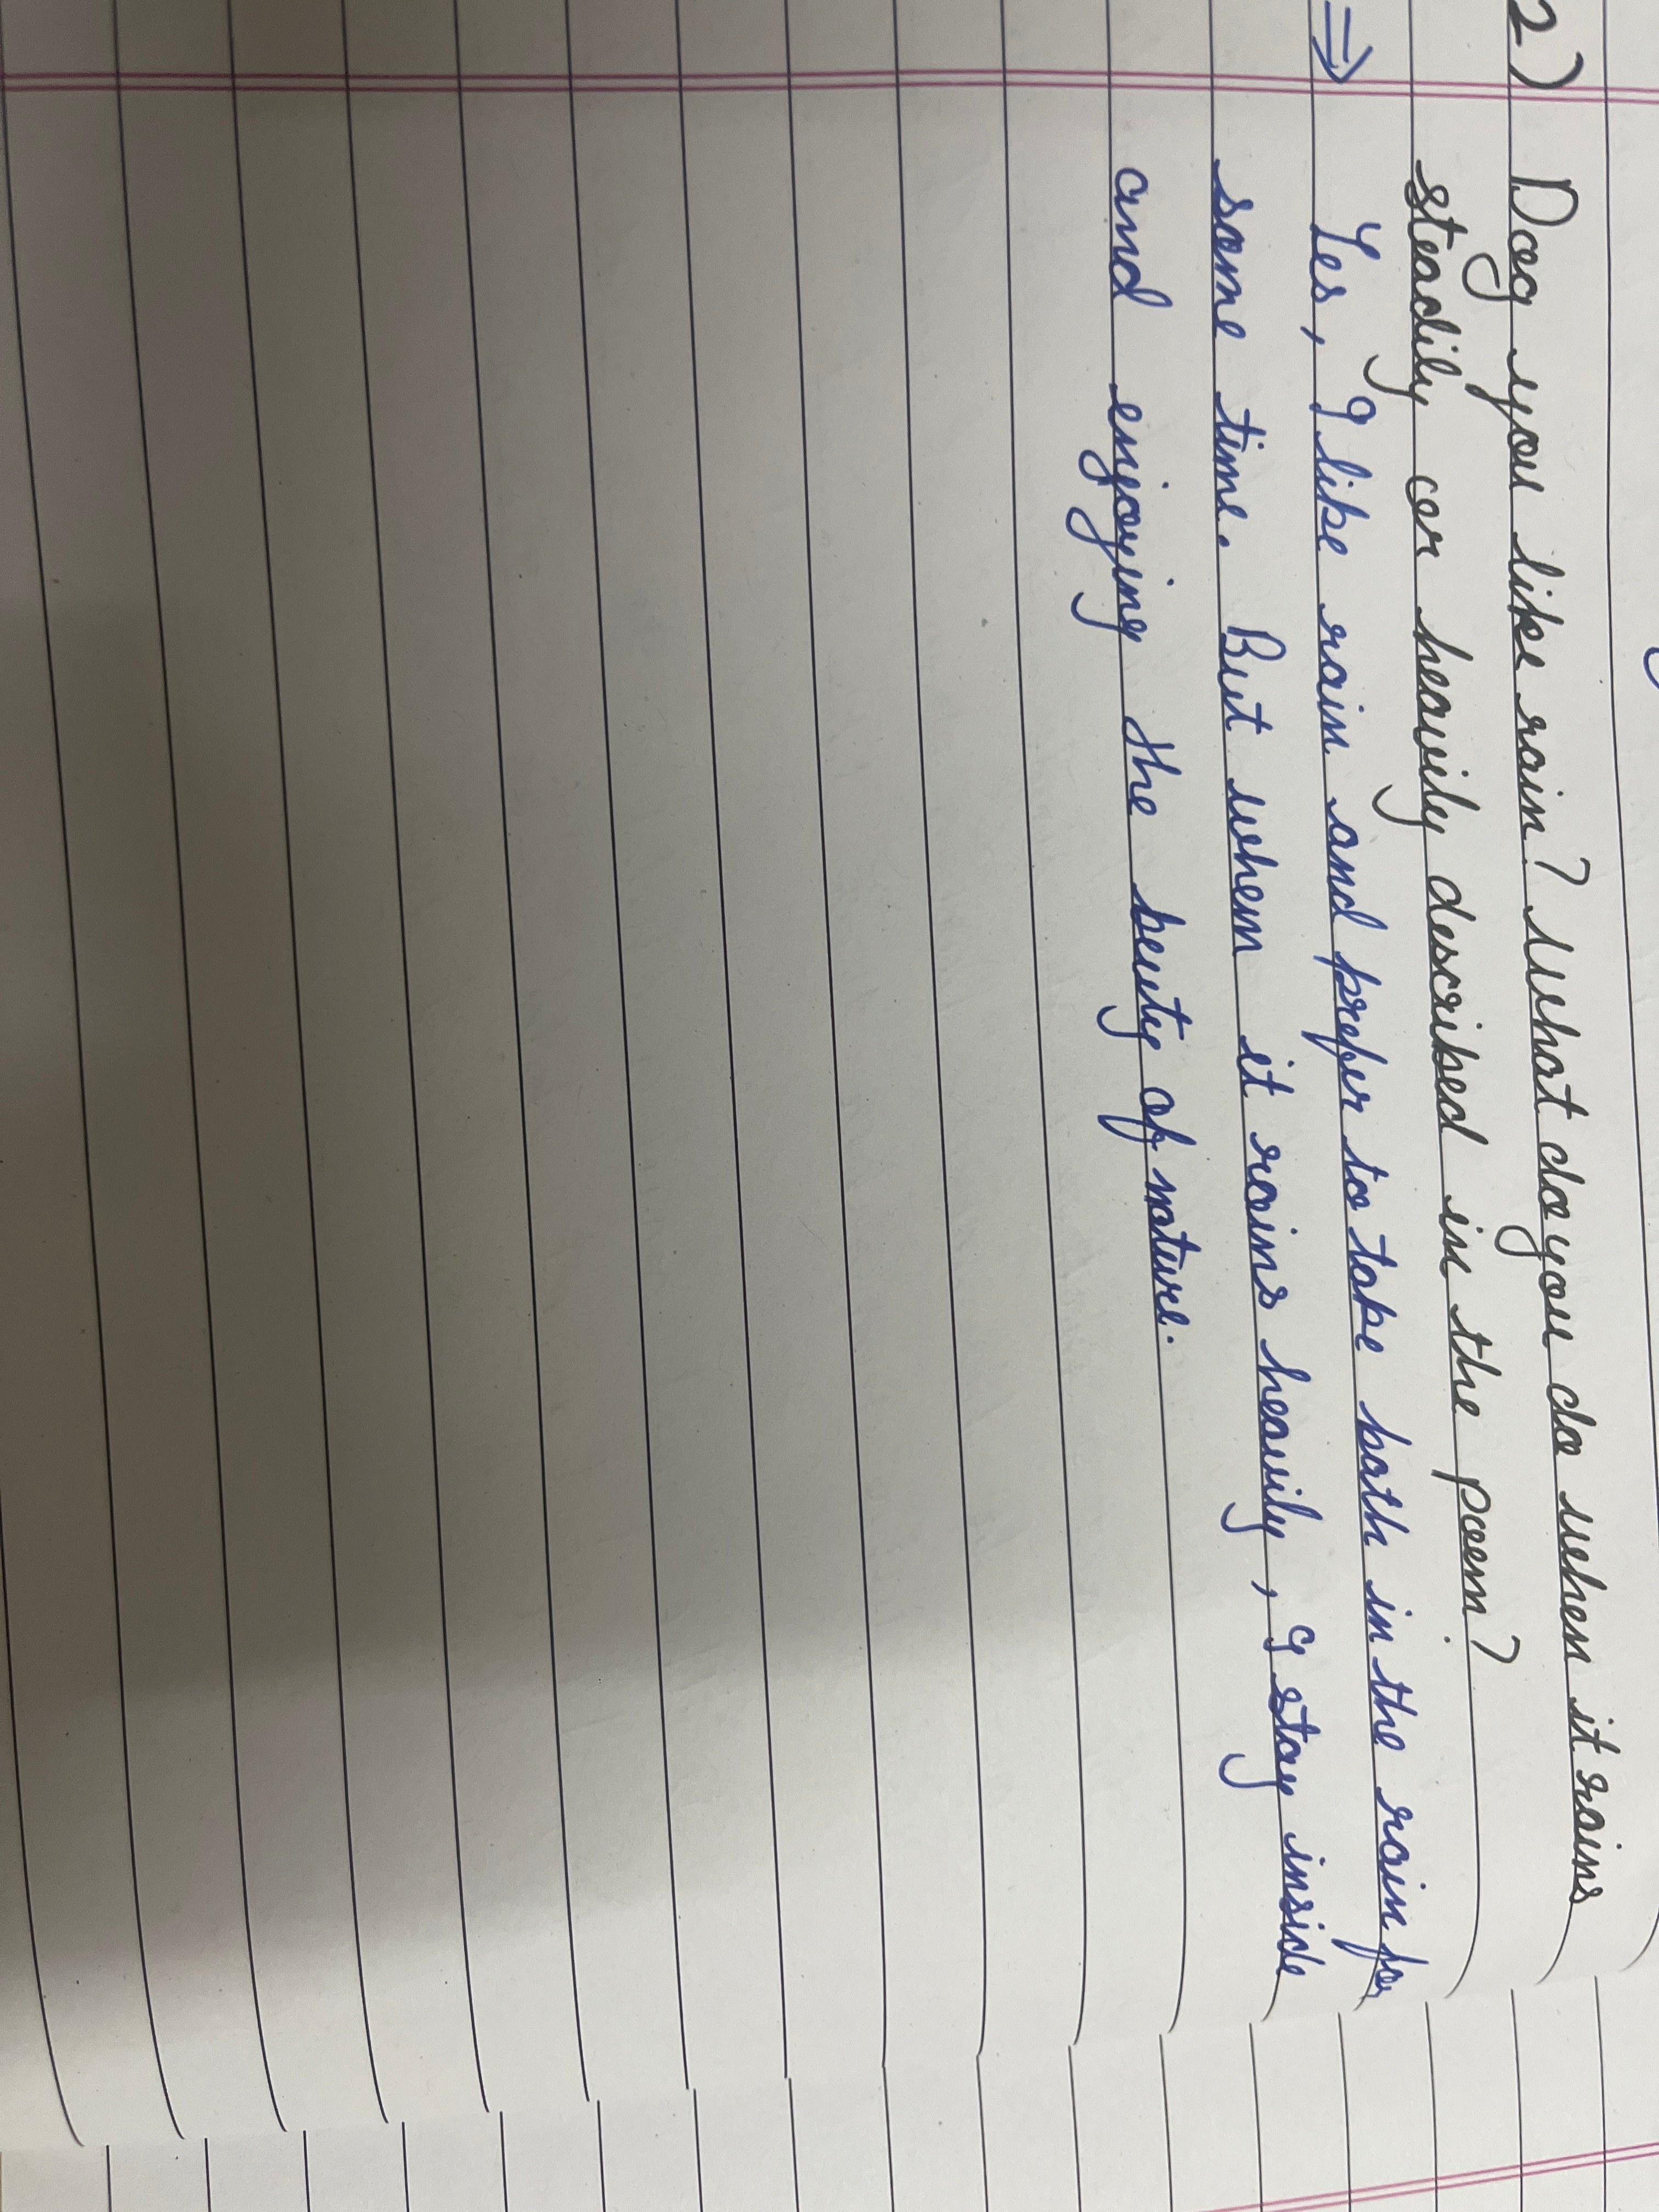 2) Dog you like rain? What do you do when it rains
steadily or heavily described in the poem?
⇒ Yes, I like rain and prefer to take bath in the rain for
some time. But when it rains heavily, I stay inside
and enjoying the beuty of nature.